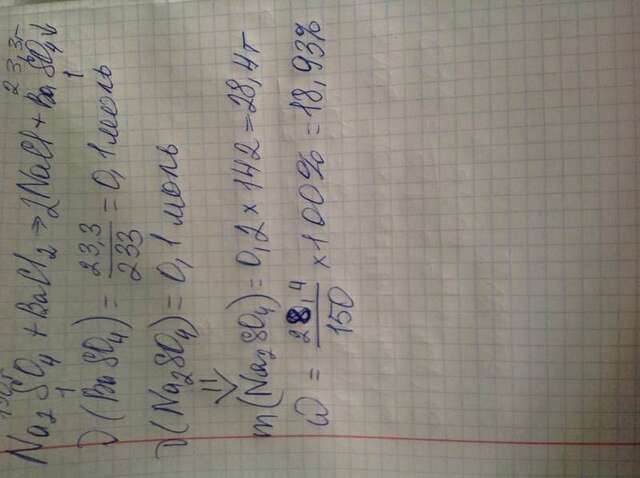 150г 23,3г
Na₂SO₄ + BaCl₂ → 2NaCl + BaSO₄↓
1 1
ν(BaSO₄) = 23,3/233 = 0,1 моль
ν(Na₂SO₄) = 0,1 моль
=>
m(Na₂SO₄) = 0,2 × 142 = 28,4г
ω = 28,4/150 × 100% = 18,93%